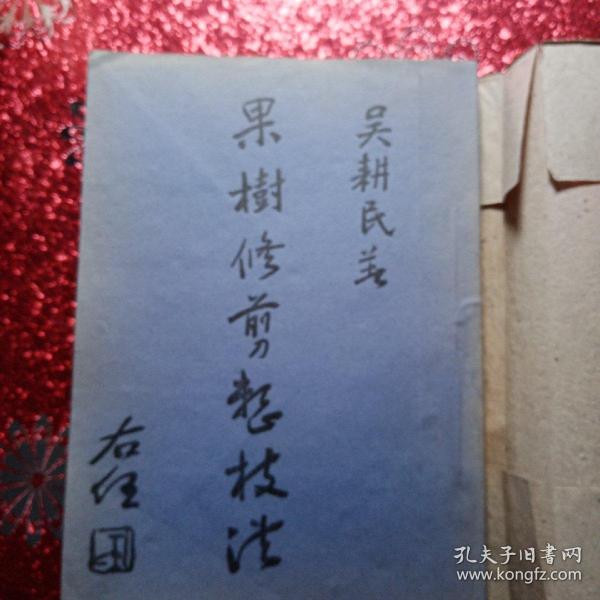 吴耕民著
果樹修剪整枝法
右任
孔夫子旧書网
www.kongfz.com